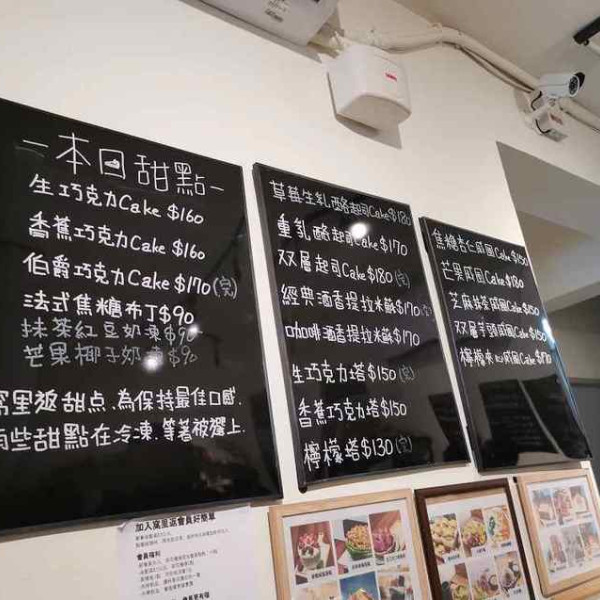 －本日甜點－
生巧克力Cake $160
香蕉巧克力Cake $160
伯爵巧克力Cake $170(完)
法式焦糖布丁$90
抹茶紅豆奶凍$90
芒果椰子奶凍$90
窩里返甜点.為保持最佳口感.
有些甜點在冷凍.等著被選上.
草莓生乳酪起司Cake$180
重乳酪起司Cake $170
双層起司Cake$180(完)
經典酒香提拉米蘇$170(完)
咖啡酒香提拉米蘇$170
生巧克力塔$150(完)
香蕉巧克力塔$150
檸檬塔$130(完)
焦糖杏仁戚風Cake$150
芒果戚風Cake $180
芝麻抹茶戚風Cake$150
双層芋頭戚風Cake$150
檸檬夾心戚風Cake$170
加入窩里返會員好簡單
會員福利